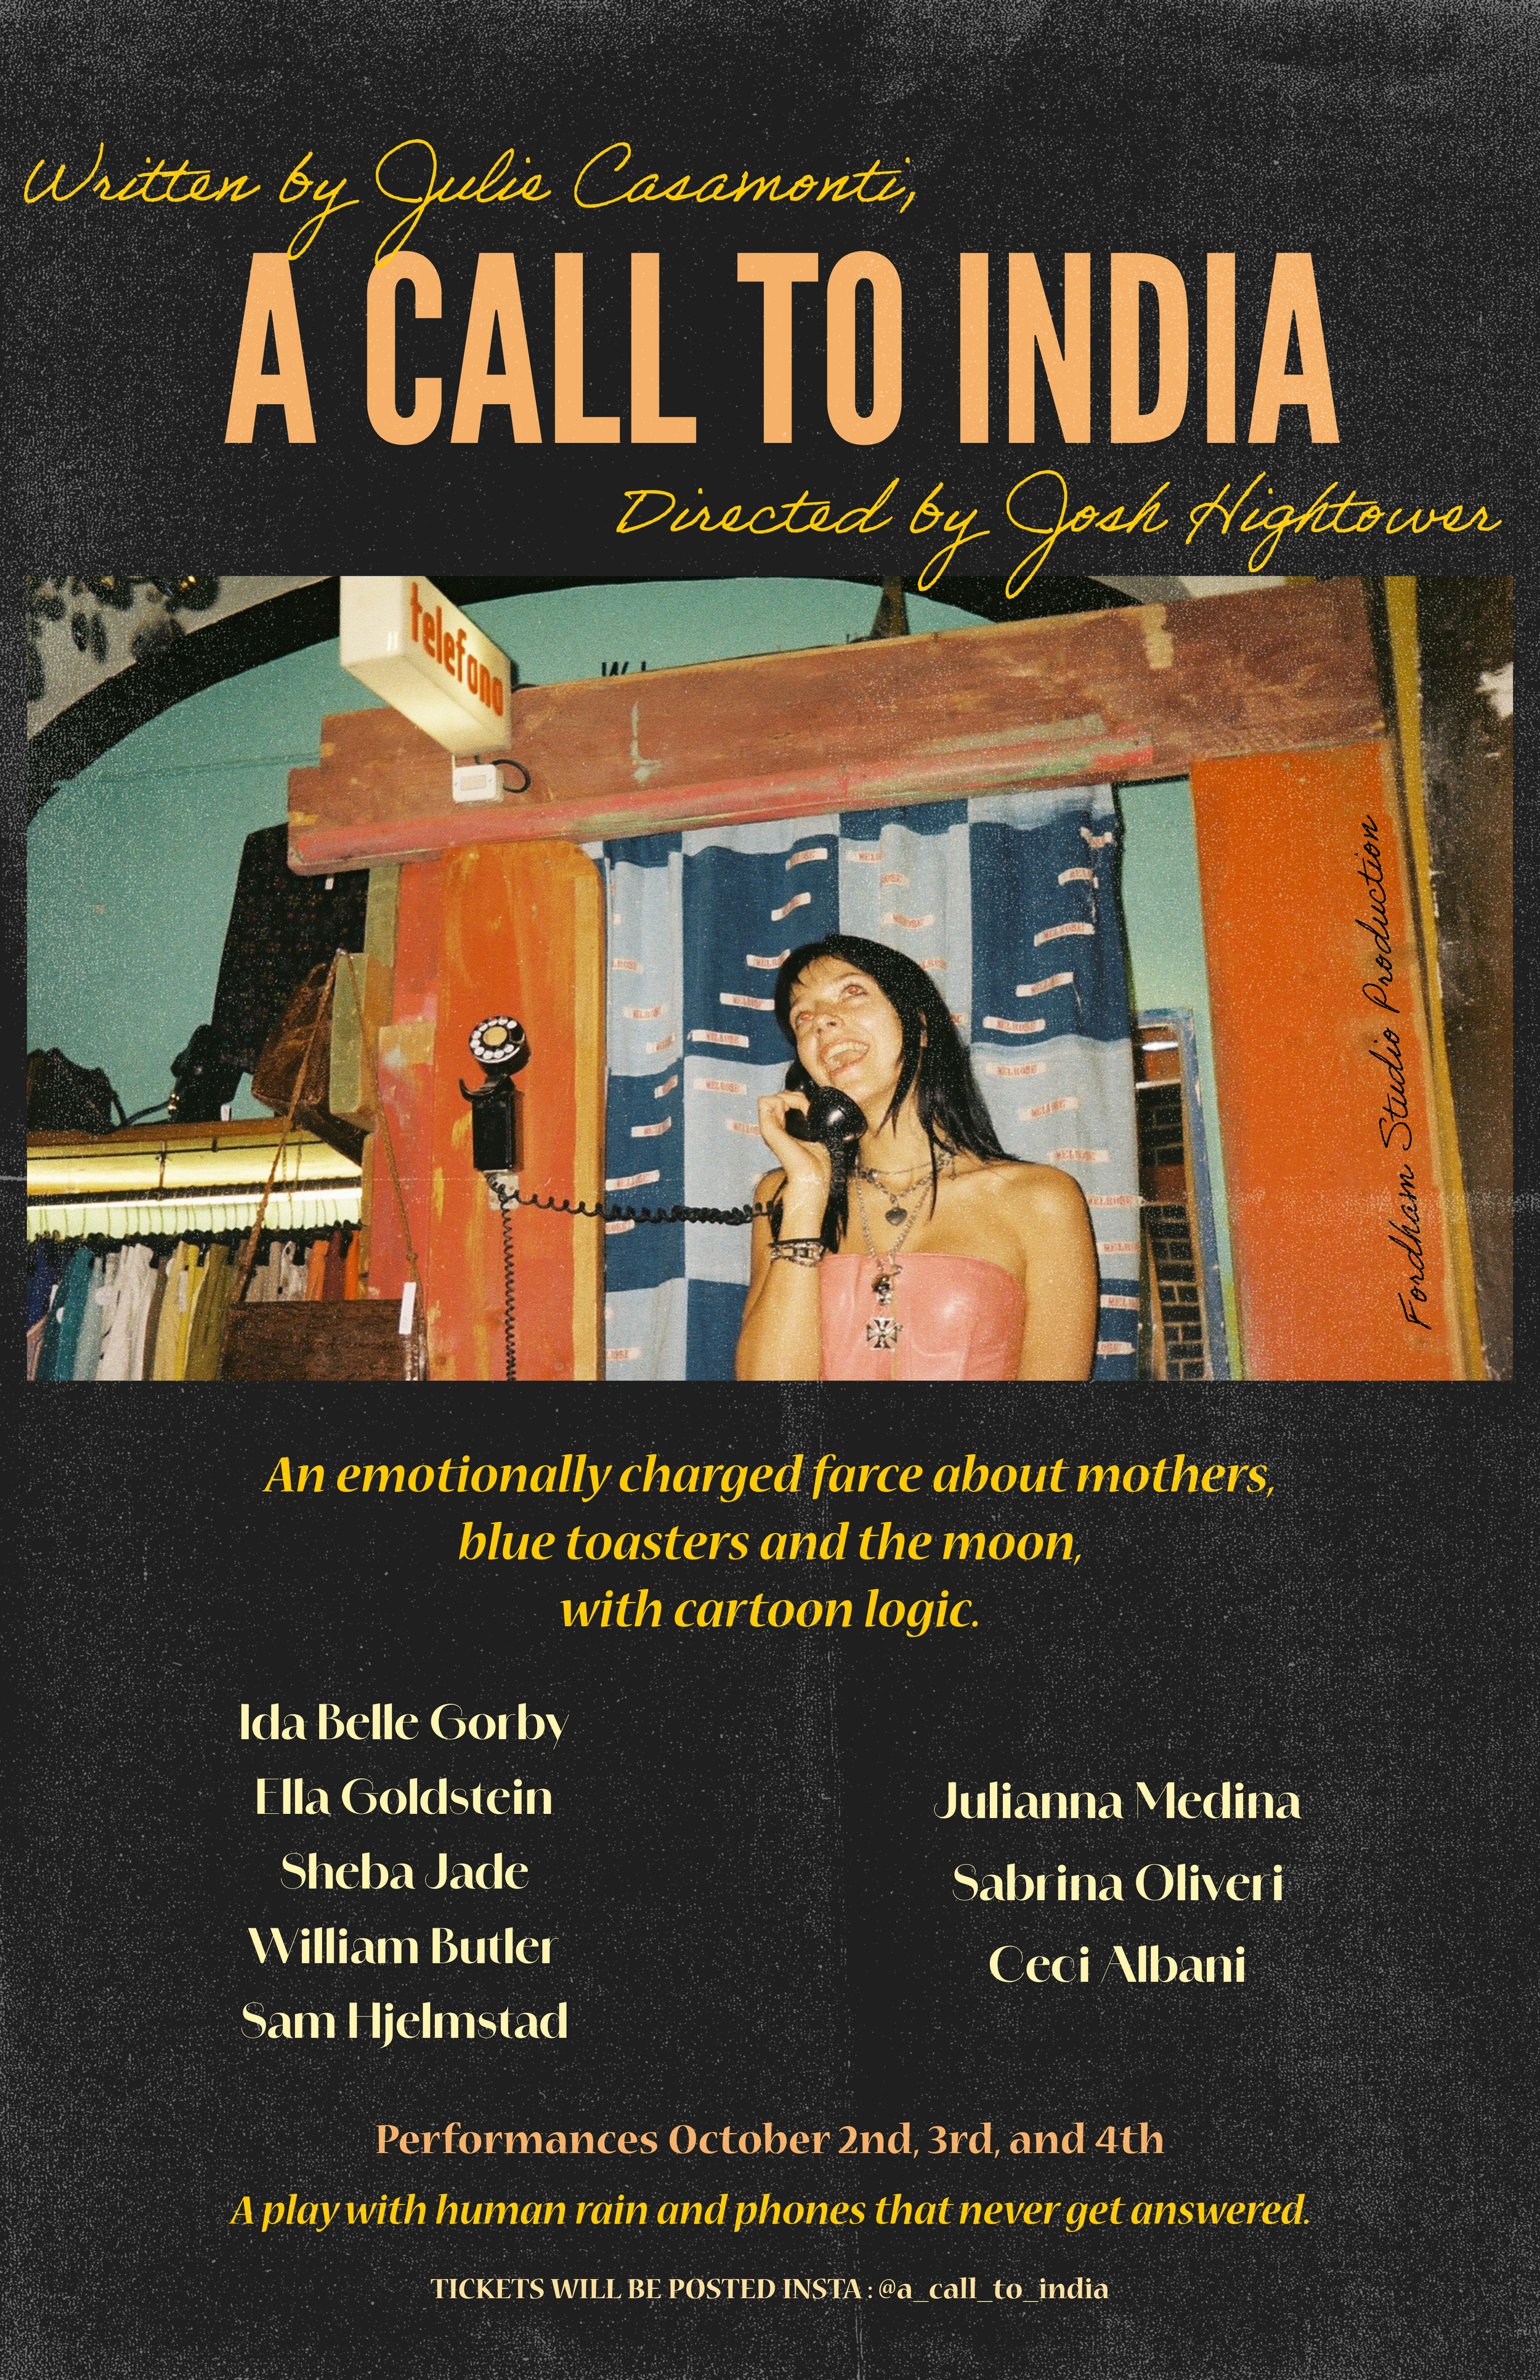 Written by Julie Casamonti,
A CALL TO INDIA
Directed by Josh Hightower
telefono
Fordham Studio Production
MELROSE
An emotionally charged farce about mothers,
blue toasters and the moon,
with cartoon logic.
Ida Belle Gorby
Ella Goldstein
Sheba Jade
William Butler
Sam Hjelmstad
Julianna Medina
Sabrina Oliveri
Ceci Albani
Performances October 2nd, 3rd, and 4th
A play with human rain and phones that never get answered.
TICKETS WILL BE POSTED INSTA : @a_call_to_india